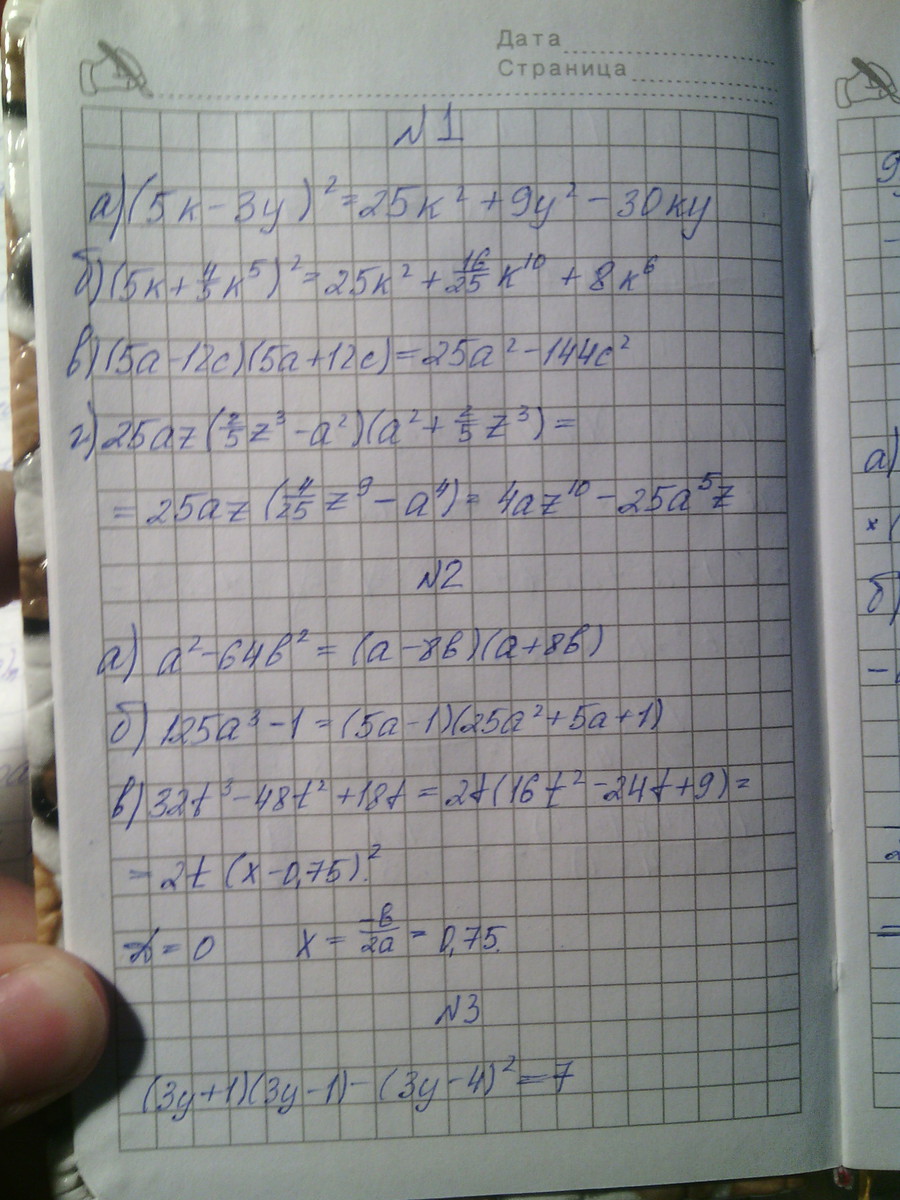 Дата
Страница
№1
а) (5к - 3у)² = 25к² + 9у² - 30ку
б) (5к + 4/5 к⁵)² = 25к² + 16/25 к¹⁰ + 8к⁶
в) (5а - 12с)(5а + 12с) = 25а² - 144с²
г) 25az (2/5 z³ - a²)(a² + 2/5 z³) =
= 25az (4/25 z⁹ - a⁴) = 4az¹⁰ - 25a⁵z
№2
а) а² - 64в² = (а - 8в)(а + 8в)
б) 125а³ - 1 = (5а - 1)(25а² + 5а + 1)
в) 32t³ - 48t² + 18t = 2t(16t² - 24t + 9) =
= 2t (х - 0,75)².
= 0 х = -в/2а = 0,75.
№3
(3у + 1)(3у - 1) - (3у - 4)² = 7
9
-
а)
× (
б)
-
=